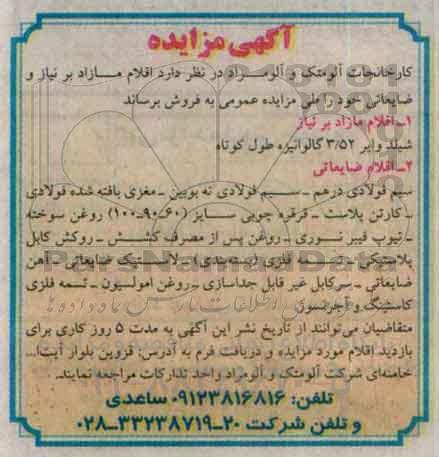 آگهی مزایده
کارخانجات آلومتک و آلومراد در نظر دارد اقلام مازاد بر نیاز و
ضایعاتی خود را طی مزایده عمومی به فروش برساند
۱ـ اقلام مازاد بر نیاز
شیلد وایر ۳/۵۲ گالوانیزه طول کوتاه
۲ـ اقلام ضایعاتی
سیم فولادی درهم ـ سیم فولادی ته بوبین ـ مغزی بافته شده فولادی
ـ کارتن پلاست ـ قرقره چوبی سایز (۶۰-۹۰-۱۰۰) روغن سوخته
ـ تیوپ فیبر نوری ـ روغن پس از مصرف کشش ـ روکش کابل
پلاستیکی ـ تسمه فلزی (بسته‌بندی) ـ پلاستیک ضایعاتی ـ آهن
ضایعاتی ـ سرکابل غیر قابل جداسازی ـ روغن امولسیون ـ تسمه فلزی
کاستینگ و آجرنسوز
متقاضیان می‌توانند از تاریخ نشر این آگهی به مدت ۵ روز کاری برای
بازدید اقلام مورد مزایده و دریافت فرم به آدرس: قزوین بلوار آیت‌ا...
خامنه‌ای شرکت آلومتک و آلومراد واحد تدارکات مراجعه نمایند.
تلفن: ۰۹۱۲۳۸۱۶۸۱۶ ساعدی
و تلفن شرکت ۲۰-۳۳۲۳۸۷۱۹-۰۲۸
ParsNamadData